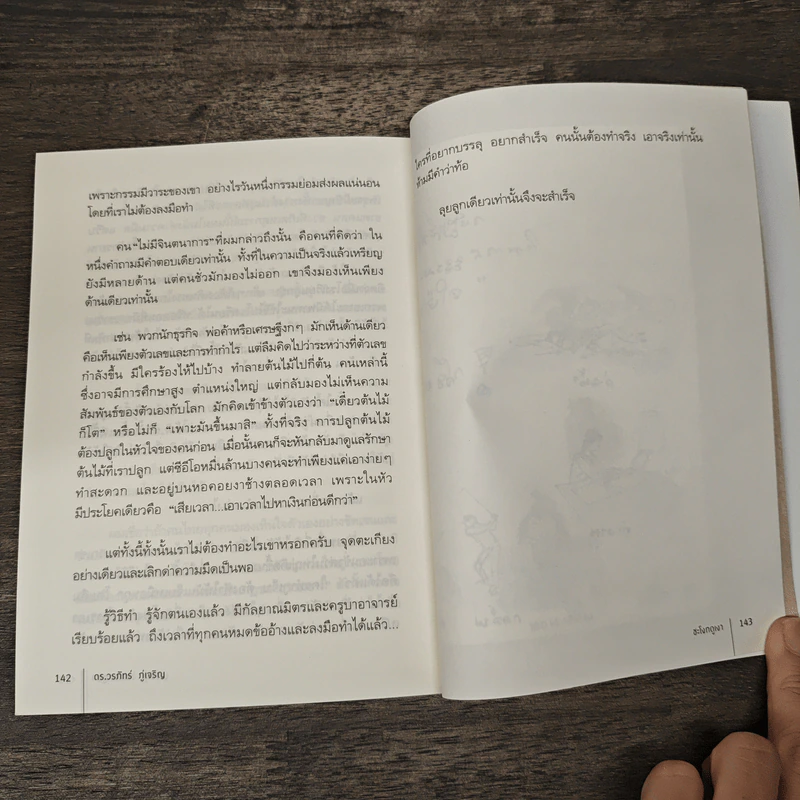 เพราะกรรมมีวาระของเขา อย่างไรวันหนึ่งกรรมย่อมส่งผลแน่นอน
โดยที่เราไม่ต้องลงมือทำ
คน“ไม่มีจินตนาการ”ที่ผมกล่าวถึงนั้น คือคนที่คิดว่า ใน
หนึ่งคำถามมีคำตอบเดียวเท่านั้น ทั้งที่ในความเป็นจริงแล้วเหรียญ
ยังมีหลายด้าน แต่คนชั่วมักมองไม่ออก เขาจึงมองเห็นเพียง
ด้านเดียวเท่านั้น
เช่น พวกนักธุรกิจ พ่อค้าหรือเศรษฐีงกๆ มักเห็นด้านเดียว
คือเห็นเพียงตัวเลขและการทำกำไร แต่ลืมคิดไปว่าระหว่างที่ตัวเลข
กำลังขึ้น มีใครร้องไห้ไปบ้าง ทำลายต้นไม้ไปกี่ต้น คนเหล่านี้
ซึ่งอาจมีการศึกษาสูง ตำแหน่งใหญ่ แต่กลับมองไม่เห็นความ
สัมพันธ์ของตัวเองกับโลก มักคิดเข้าข้างตัวเองว่า “เดี๋ยวต้นไม้
ก็โต” หรือไม่ก็ “เพาะมันขึ้นมาสิ” ทั้งที่จริง การปลูกต้นไม้
ต้องปลูกในหัวใจของคนก่อน เมื่อนั้นคนก็จะหันกลับมาดูแลรักษา
ต้นไม้ที่เราปลูก แต่ซีอีโอหมื่นล้านบางคนจะทำเพียงแค่เอาง่ายๆ
ทำสะดวก และอยู่บนหอคอยงาช้างตลอดเวลา เพราะในหัว
มีประโยคเดียวคือ “เสียเวลา...เอาเวลาไปหาเงินก่อนดีกว่า”
แต่ทั้งนี้ทั้งนั้นเราไม่ต้องทำอะไรเขาหรอกครับ จุดตะเกียง
อย่างเดียวและเลิกด่าความมืดเป็นพอ
รู้วิธีทำ รู้จักตนเองแล้ว มีกัลยาณมิตรและครูบาอาจารย์
เรียบร้อยแล้ว ถึงเวลาที่ทุกคนหมดข้ออ้างและลงมือทำได้แล้ว...
142 ดร.วรภัทร์ ภู่เจริญ
ใครที่อยากบรรลุ อยากสำเร็จ คนนั้นต้องทำจริง เอาจริงเท่านั้น
ห้ามมีคำว่าท้อ
ลุยลูกเดียวเท่านั้นจึงจะสำเร็จ
143